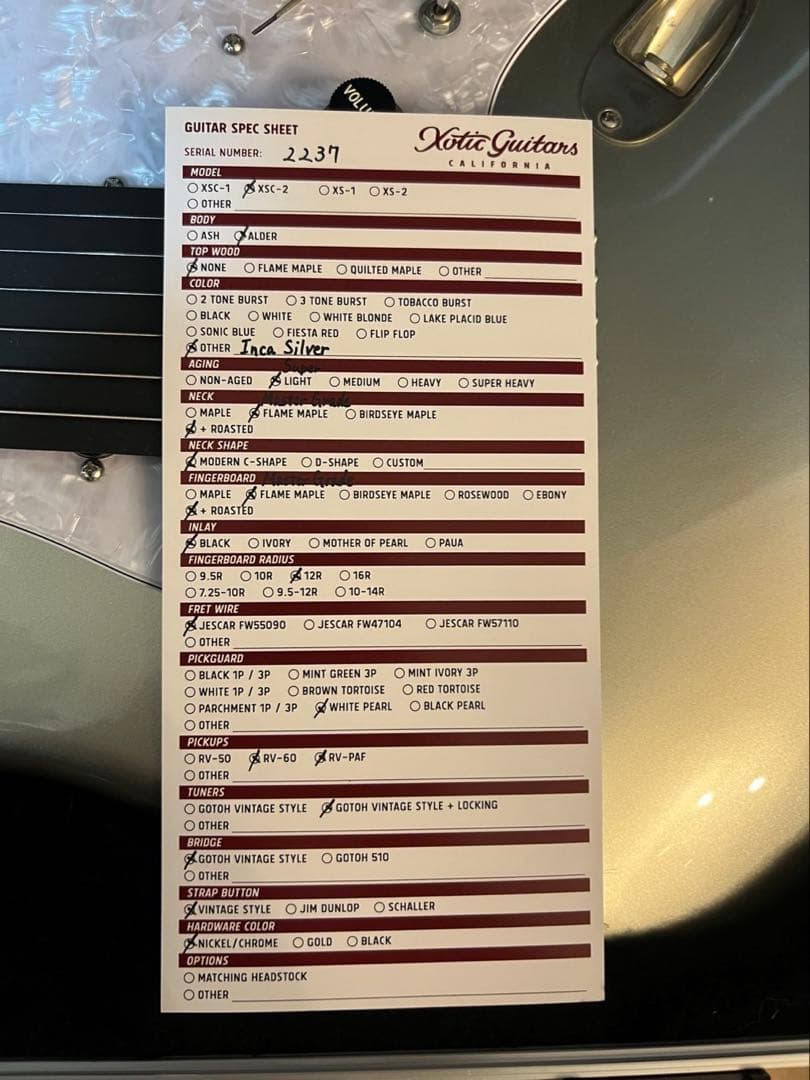 VOLU
GUITAR SPEC SHEET
Xotic Guitars
CALIFORNIA
SERIAL NUMBER: 2237
MODEL
XSC-1 XSC-2 XS-1 XS-2
OTHER
BODY
ASH ALDER
TOP WOOD
NONE FLAME MAPLE QUILTED MAPLE OTHER
COLOR
2 TONE BURST 3 TONE BURST TOBACCO BURST
BLACK WHITE WHITE BLONDE LAKE PLACID BLUE
SONIC BLUE FIESTA RED FLIP FLOP
OTHER Inca Silver
AGING Super
NON-AGED LIGHT MEDIUM HEAVY SUPER HEAVY
NECK Master Grade
MAPLE FLAME MAPLE BIRDSEYE MAPLE
+ ROASTED
NECK SHAPE
MODERN C-SHAPE D-SHAPE CUSTOM
FINGERBOARD Master Grade
MAPLE FLAME MAPLE BIRDSEYE MAPLE ROSEWOOD EBONY
+ ROASTED
INLAY
BLACK IVORY MOTHER OF PEARL PAUA
FINGERBOARD RADIUS
9.5R 10R 12R 16R
7.25-10R 9.5-12R 10-14R
FRET WIRE
JESCAR FW55090 JESCAR FW47104 JESCAR FW57110
OTHER
PICKGUARD
BLACK 1P / 3P MINT GREEN 3P MINT IVORY 3P
WHITE 1P / 3P BROWN TORTOISE RED TORTOISE
PARCHMENT 1P / 3P WHITE PEARL BLACK PEARL
OTHER
PICKUPS
RV-50 RV-60 RV-PAF
OTHER
TUNERS
GOTOH VINTAGE STYLE GOTOH VINTAGE STYLE + LOCKING
OTHER
BRIDGE
GOTOH VINTAGE STYLE GOTOH 510
OTHER
STRAP BUTTON
VINTAGE STYLE JIM DUNLOP SCHALLER
HARDWARE COLOR
NICKEL/CHROME GOLD BLACK
OPTIONS
MATCHING HEADSTOCK
OTHER